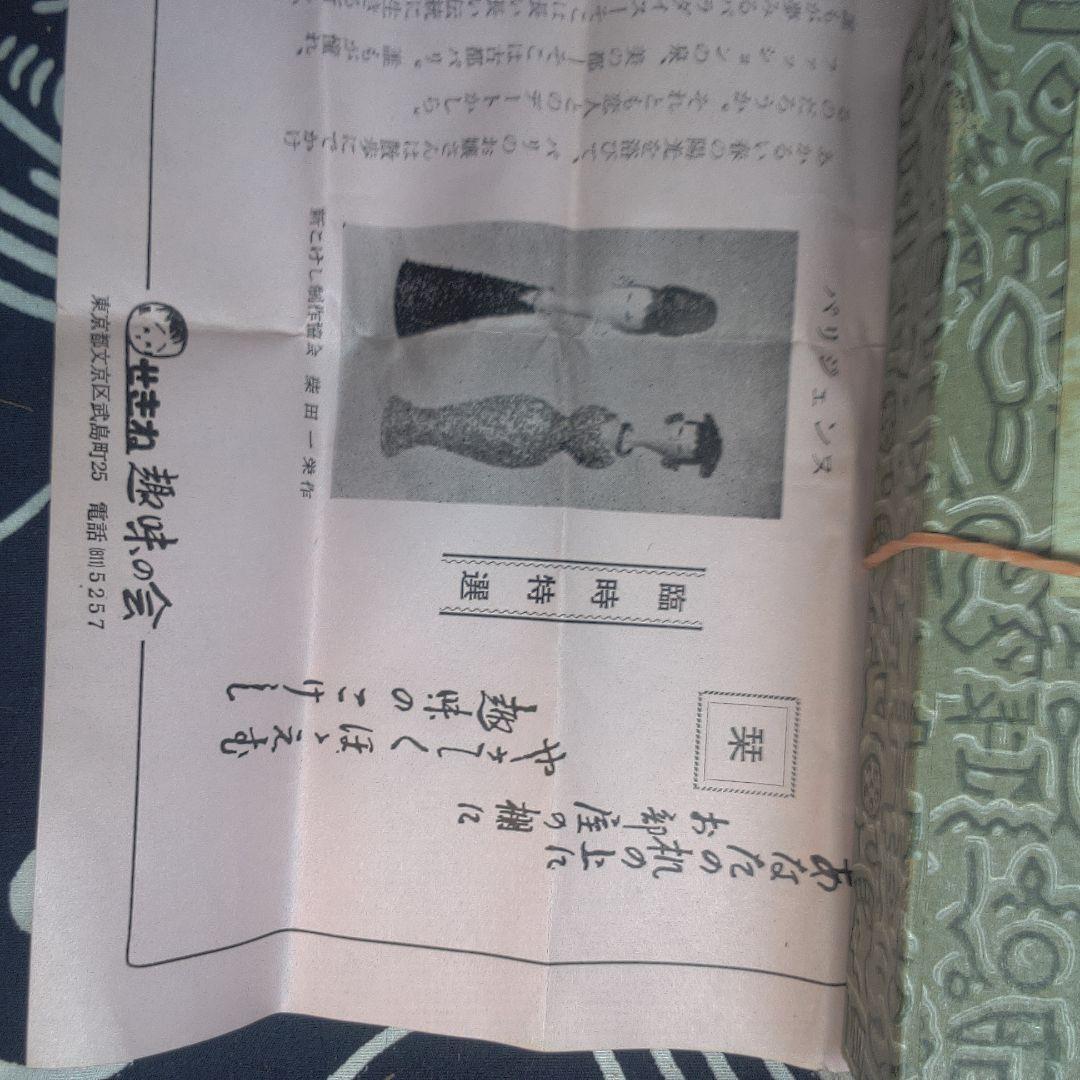 あなたの机の上に
お部屋の棚に
やさしくほゝえむ
趣味のこけし
栞
臨時特選
パリジェンヌ
新こけし制作協会 柴田一栄作
あかるい春の陽光を浴びて、パリのお嬢さんは散歩にでかけ
るのだろうか。それとも恋人とのデートかしら。
ファッションの泉、美の都ーそこは古都パリ。誰もが憧れ、
せきね趣味の会
東京都文京区武島町25 電話(811)5257